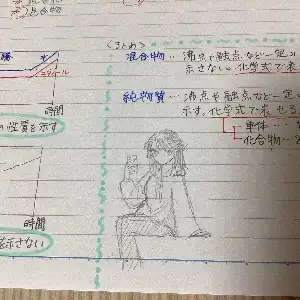 混合物
勝 水
エタノール
時間
の性質を示す
時間
を示さない
<まとめ>
混合物…沸点や融点など一定の
示さない。化学式で表せ
純物質…沸点や融点など一定の
示す。化学式で表せる
単体…
化合物…